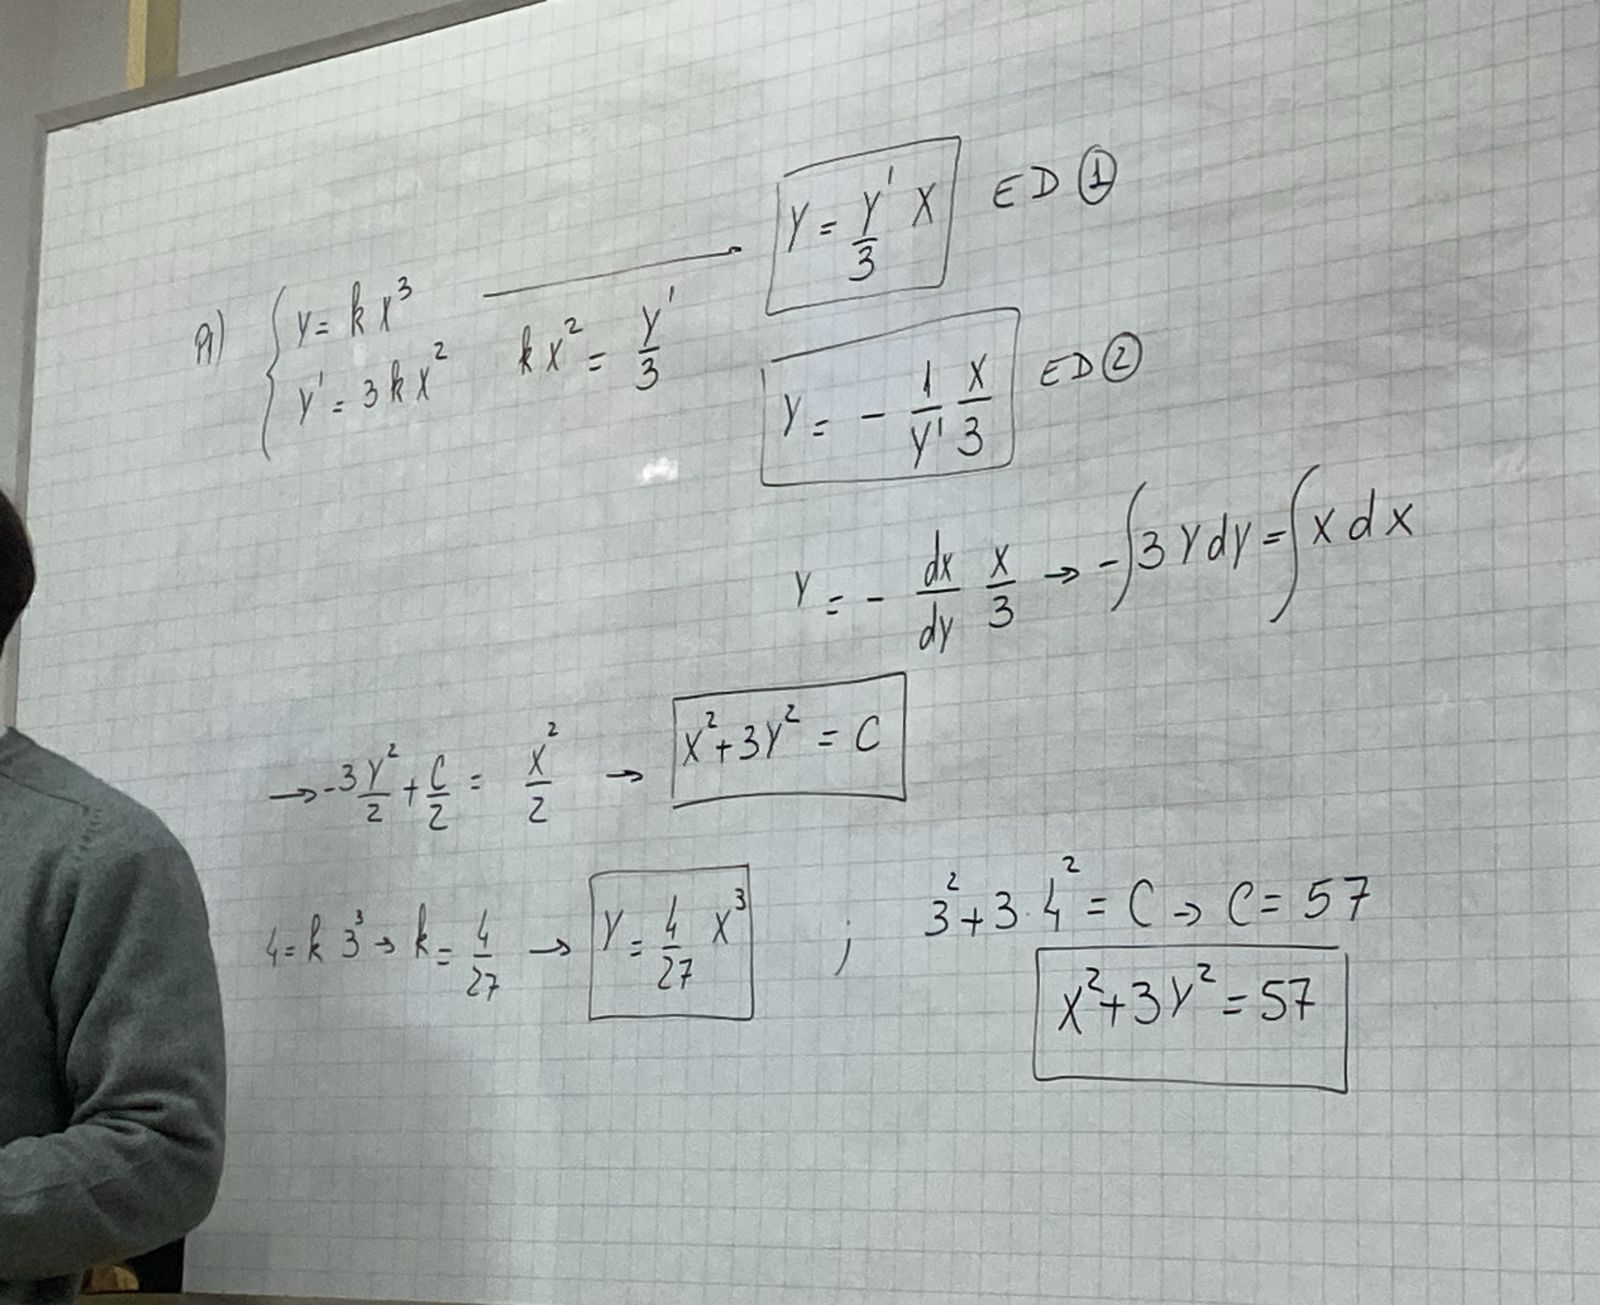 A) { y = k x³ ⟶ y = y'/3 x ED ①
y' = 3 k x² k x² = y'/3
y = - 1/y' x/3 ED ②
y = - dx/dy x/3 → -∫3 y dy = ∫x dx
→ -3 y²/2 + C/2 = x²/2 → x² + 3y² = C
4 = k 3³ → k = 4/27 → y = 4/27 x³ ; 3² + 3·4² = C → C = 57
x² + 3y² = 57